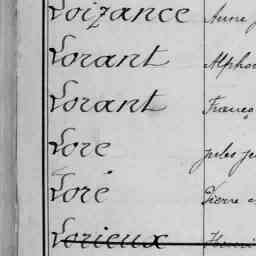 Loizance Anne
Lorant Alphon
Lorant Franço
Lore Jules
Loré Pierre
Lorieux Henri